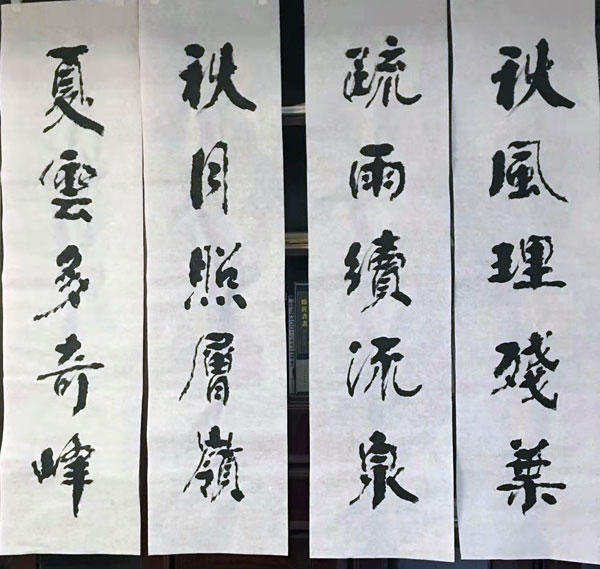 秋風理殘葉
疏雨續流泉
秋月照層嶺
夏雲多奇峰